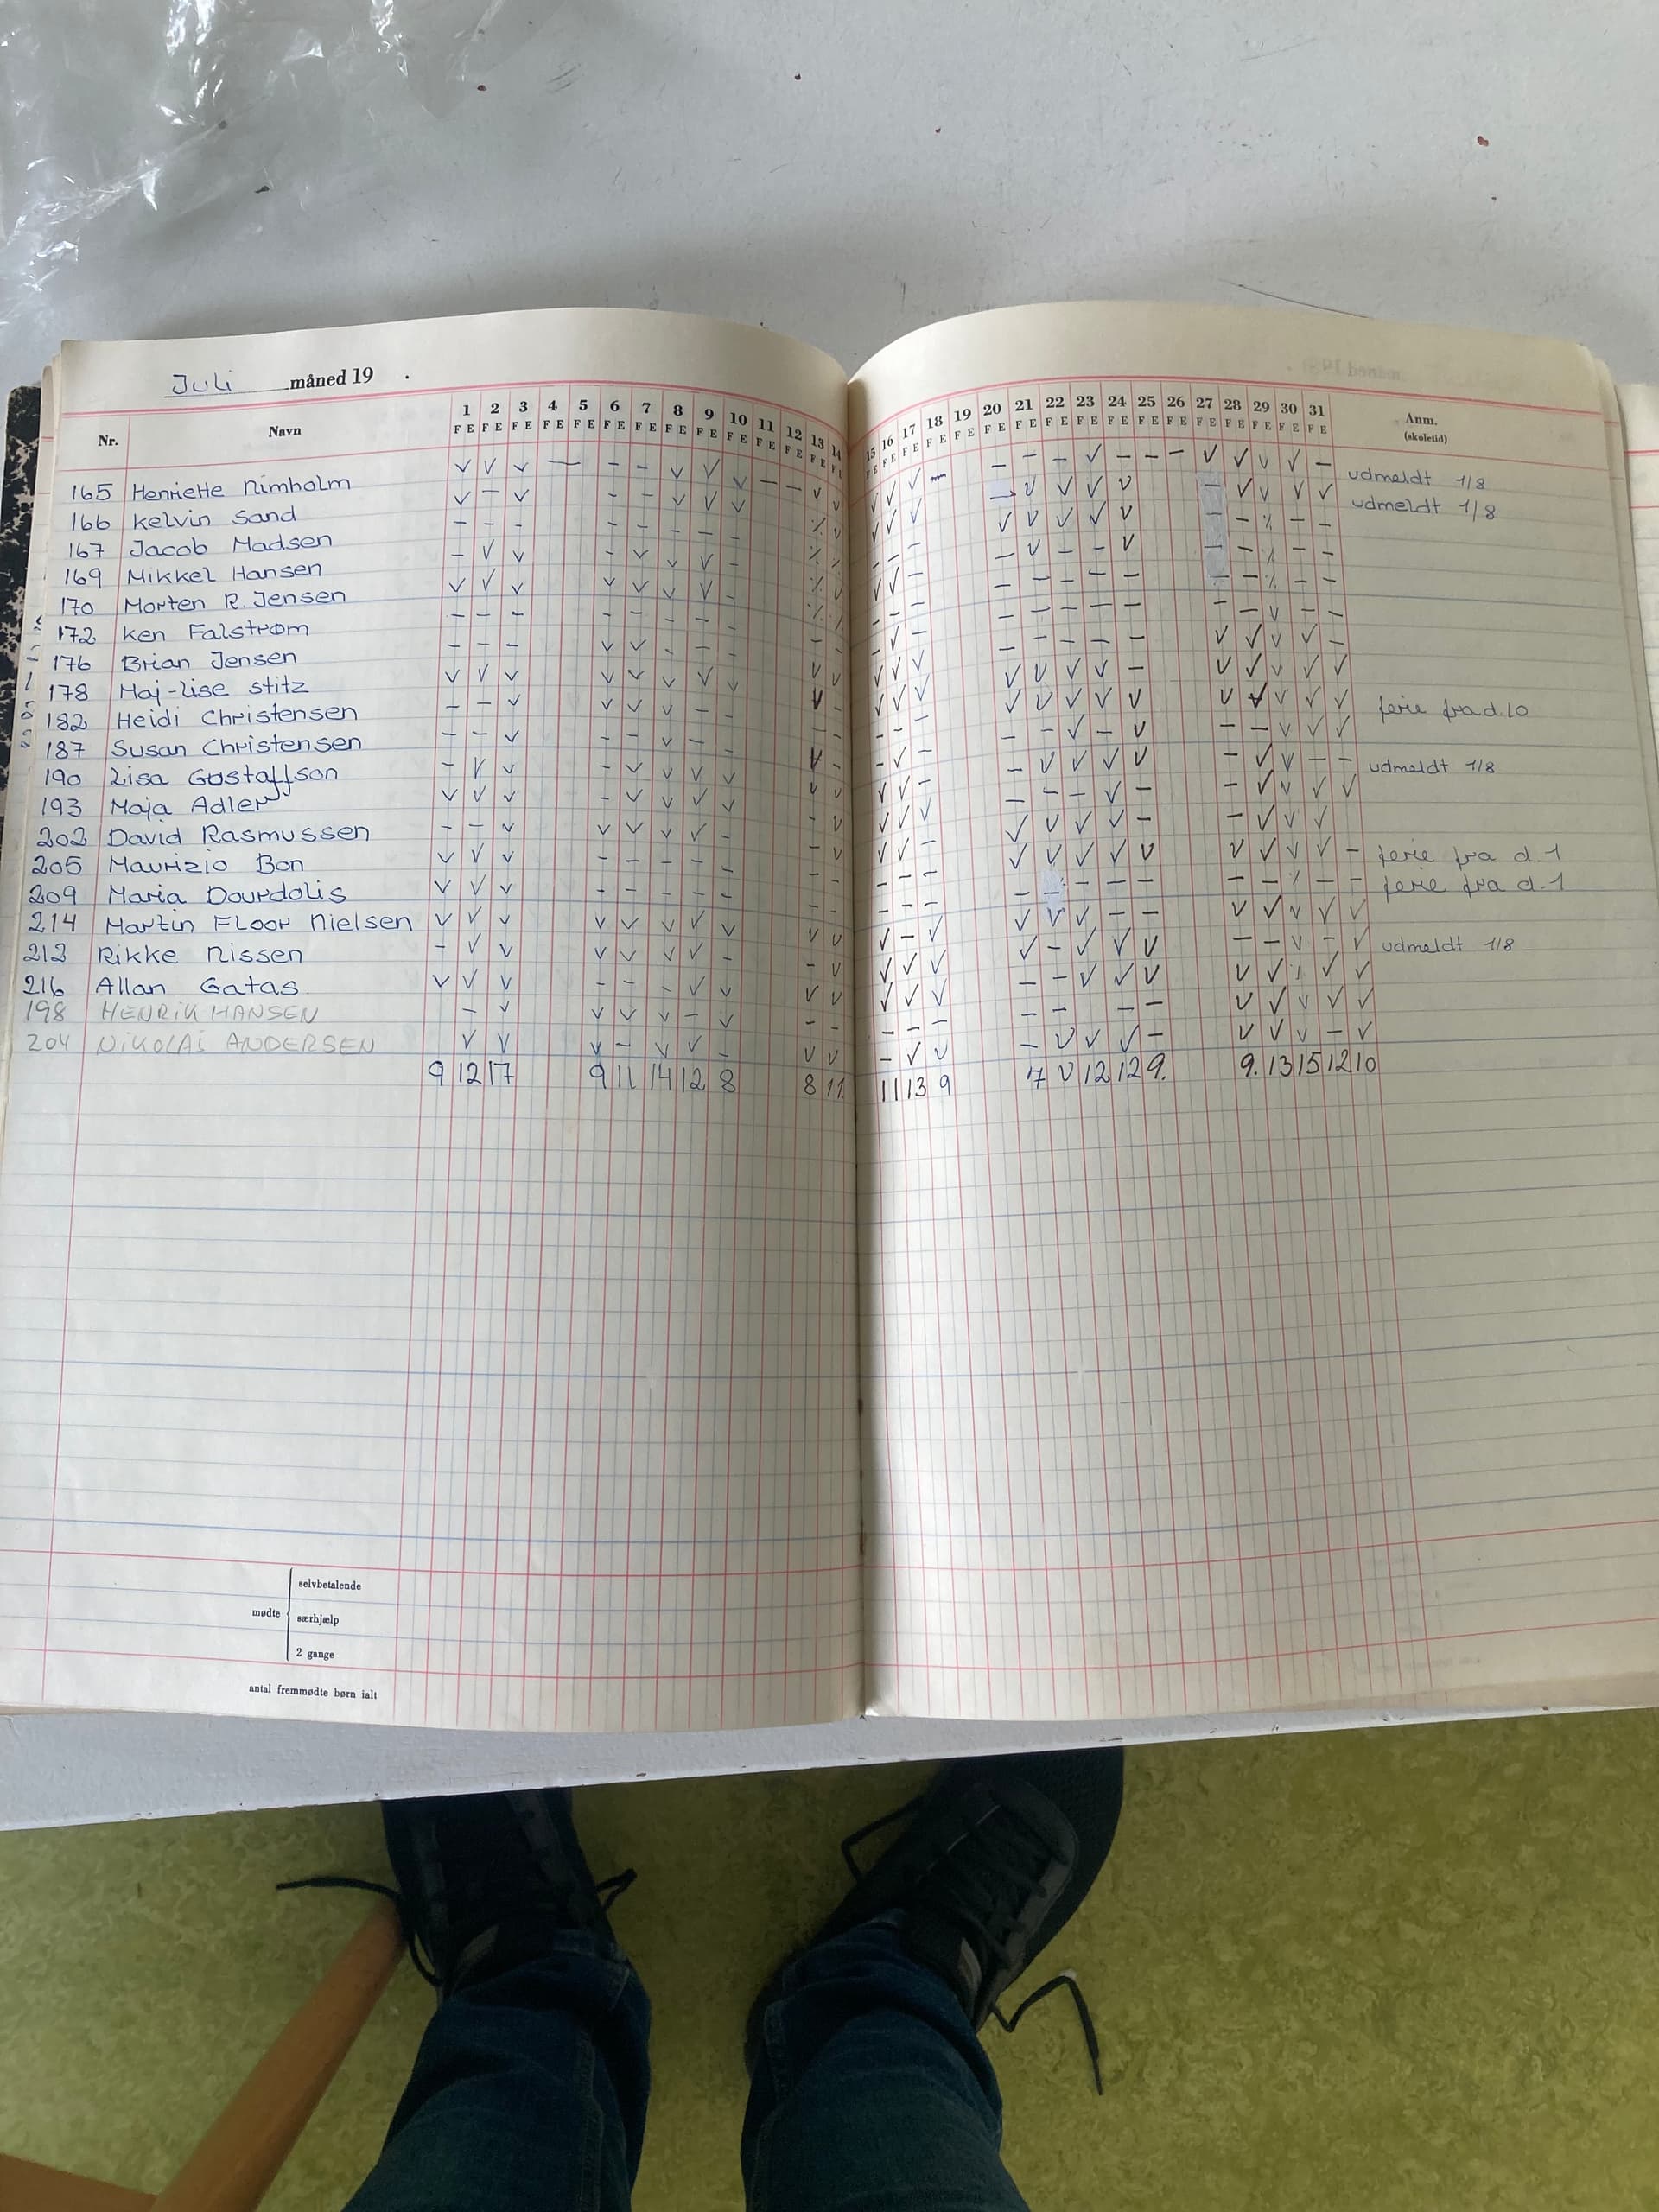 Juli måned 19
1 2 3 4 5 6 7 8 9 10 11 12 13 14 15 16 17 18 19 20 21 22 23 24 25 26 27 28 29 30 31 Anm.
Nr. Navn F E F E F E F E F E F E F E F E F E F E F E F E F E F E F E F E F E F E F E F E F E F E F E F E F E F E F E F E F E F E F E (skoletid)
165 Henriette Nimholm udmeldt 1/8
166 Kelvin Sand udmeldt 1/8
167 Jacob Madsen
169 Mikkel Hansen
170 Morten R. Jensen
172 Ken Falstrøm
176 Brian Jensen
178 Maj-Lise Stitz
182 Heidi Christensen ferie fra d. 10
187 Susan Christensen
190 Lisa Gustaffson udmeldt 1/8
193 Maja Adler
202 David Rasmussen
205 Maurizio Bon ferie fra d. 1
209 Maria Dourdolis ferie fra d. 1
214 Martin Floor Nielsen
213 Rikke Nissen udmeldt 1/8
216 Allan Gatas
198 HENRIK HANSEN
204 NIKOLAI ANDERSEN
9 12 17 9 11 14 12 8 8 11 11 13 9 7 12 12 9. 9. 13 15 12 10
selvbetalende
mødte særhjælp
2 gange
antal fremmødte børn ialt